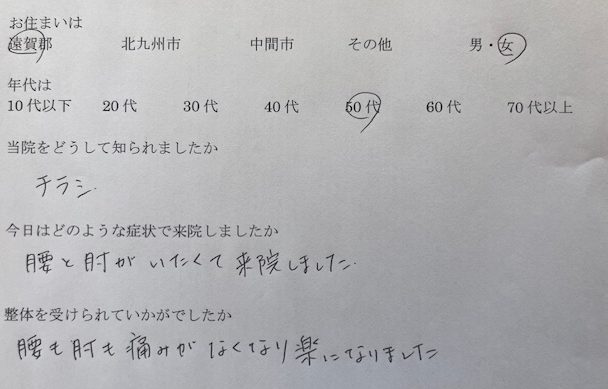 お住まいは
遠賀郡 北九州市 中間市 その他 男・女
年代は
10代以下 20代 30代 40代 50代 60代 70代以上
当院をどうして知られましたか
チラシ.
今日はどのような症状で来院しましたか
腰と肘がいたくて来院しました.
整体を受けられていかがでしたか
腰も肘も痛みがなくなり楽になりました